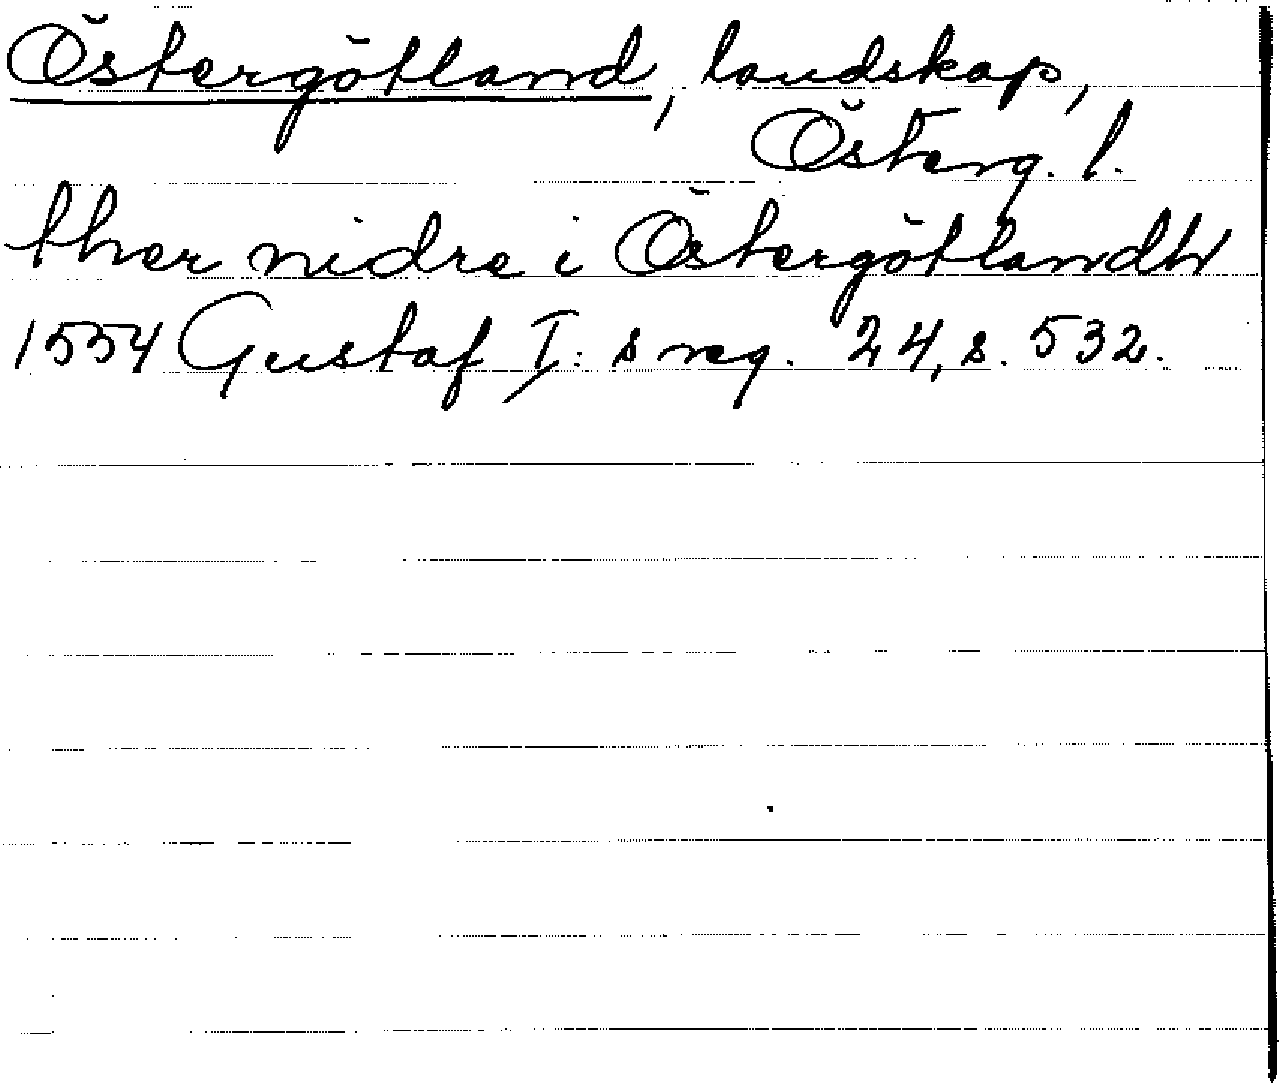 Östergötland, landskap,
Österg. l.
ther nidre i Östergötlandh
1554 Gustaf I: s reg. 24, s. 532.